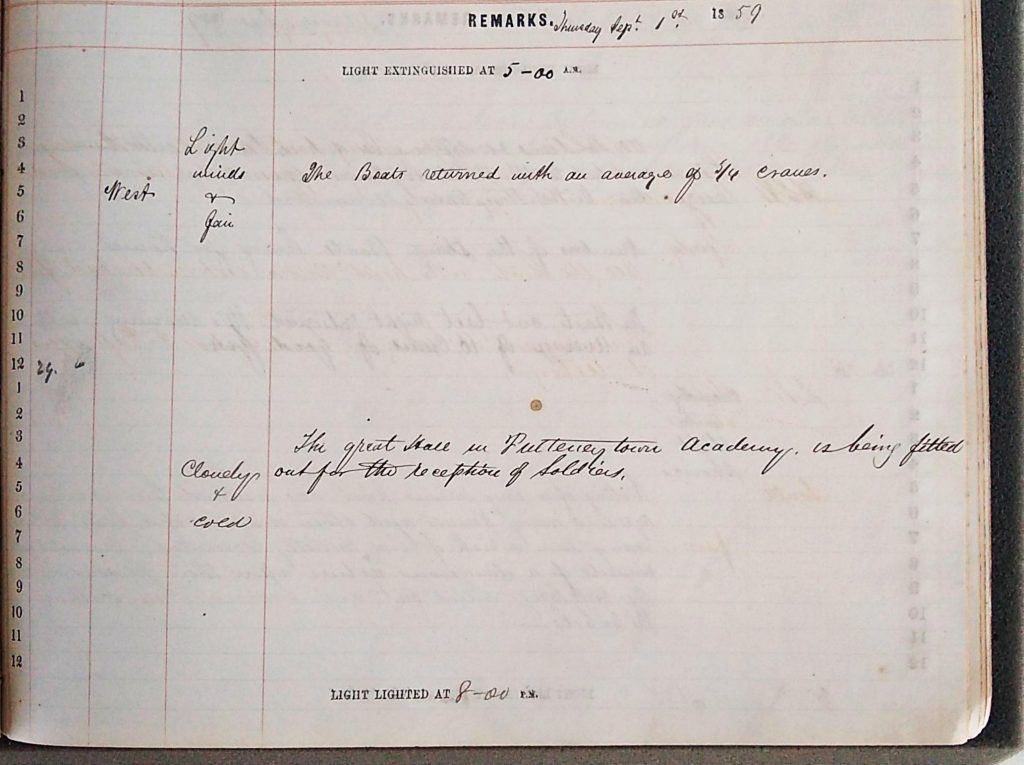 REMARKS. Thursday Sept. 1st. 1859
LIGHT EXTINGUISHED AT 5-00 A.M.
1
2
3
4
5
6
7
8
9
10
11
12
1
2
3
4
5
6
7
8
9
10
11
12
West
Light
winds
&
fair
The Boats returned with an average of 3/4 cranes.
29. 6
Cloudy
&
cold
The great Hall in Pulteneytown Academy. is being fitted
out for the reception of Soldiers.
LIGHT LIGHTED AT 8-00 P.M.